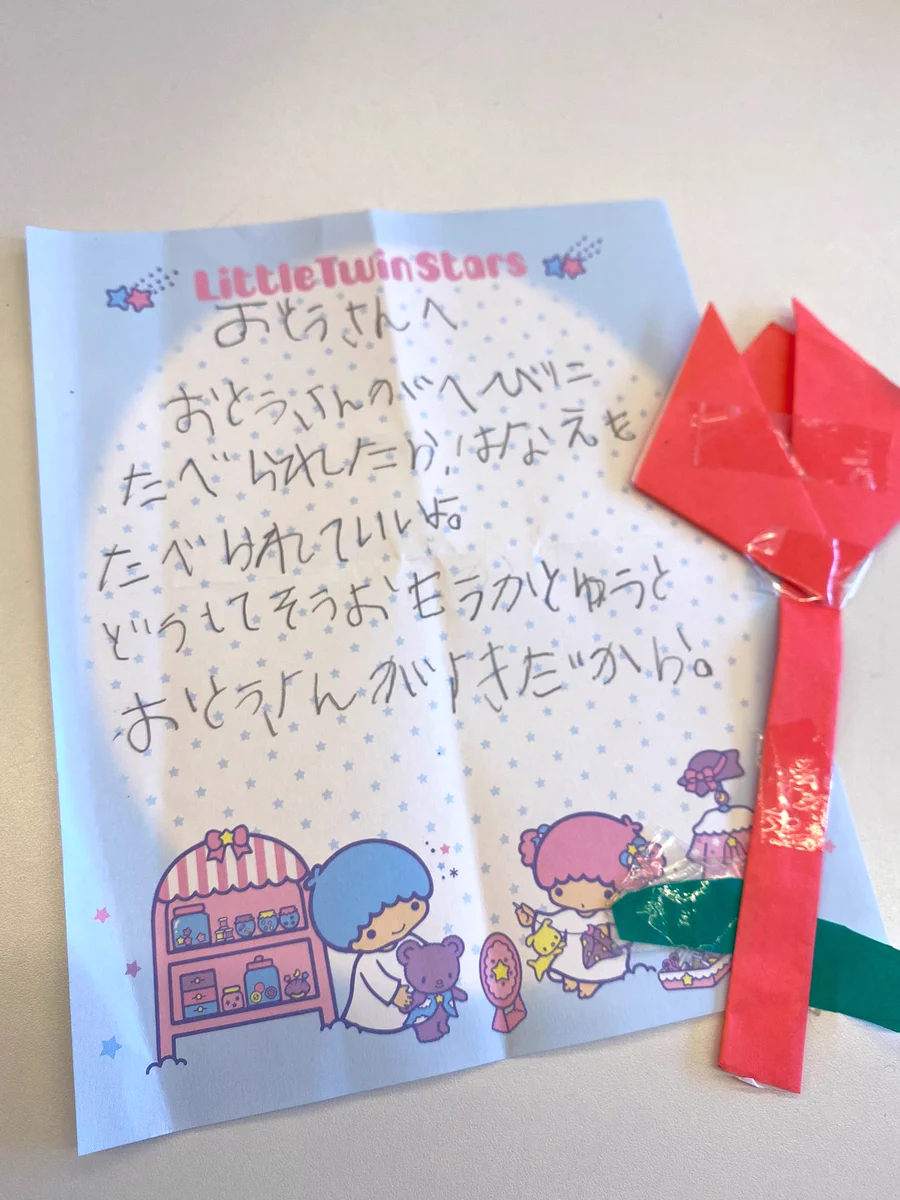 LittleTwinStars
おとうさんへ
おとうさんのがへびに
たべられたら、はなえも
たべられていいよ。
どうしてそうおもうかとゆうと
おとうさんがすきだから。